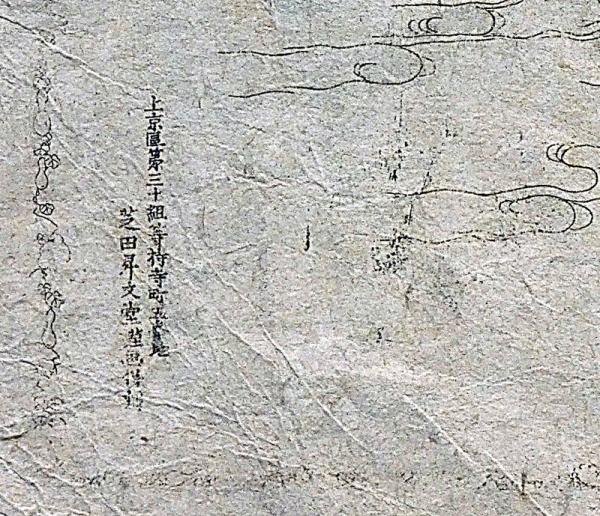 上京區第三十組等持寺町五番地
芝田昇文堂